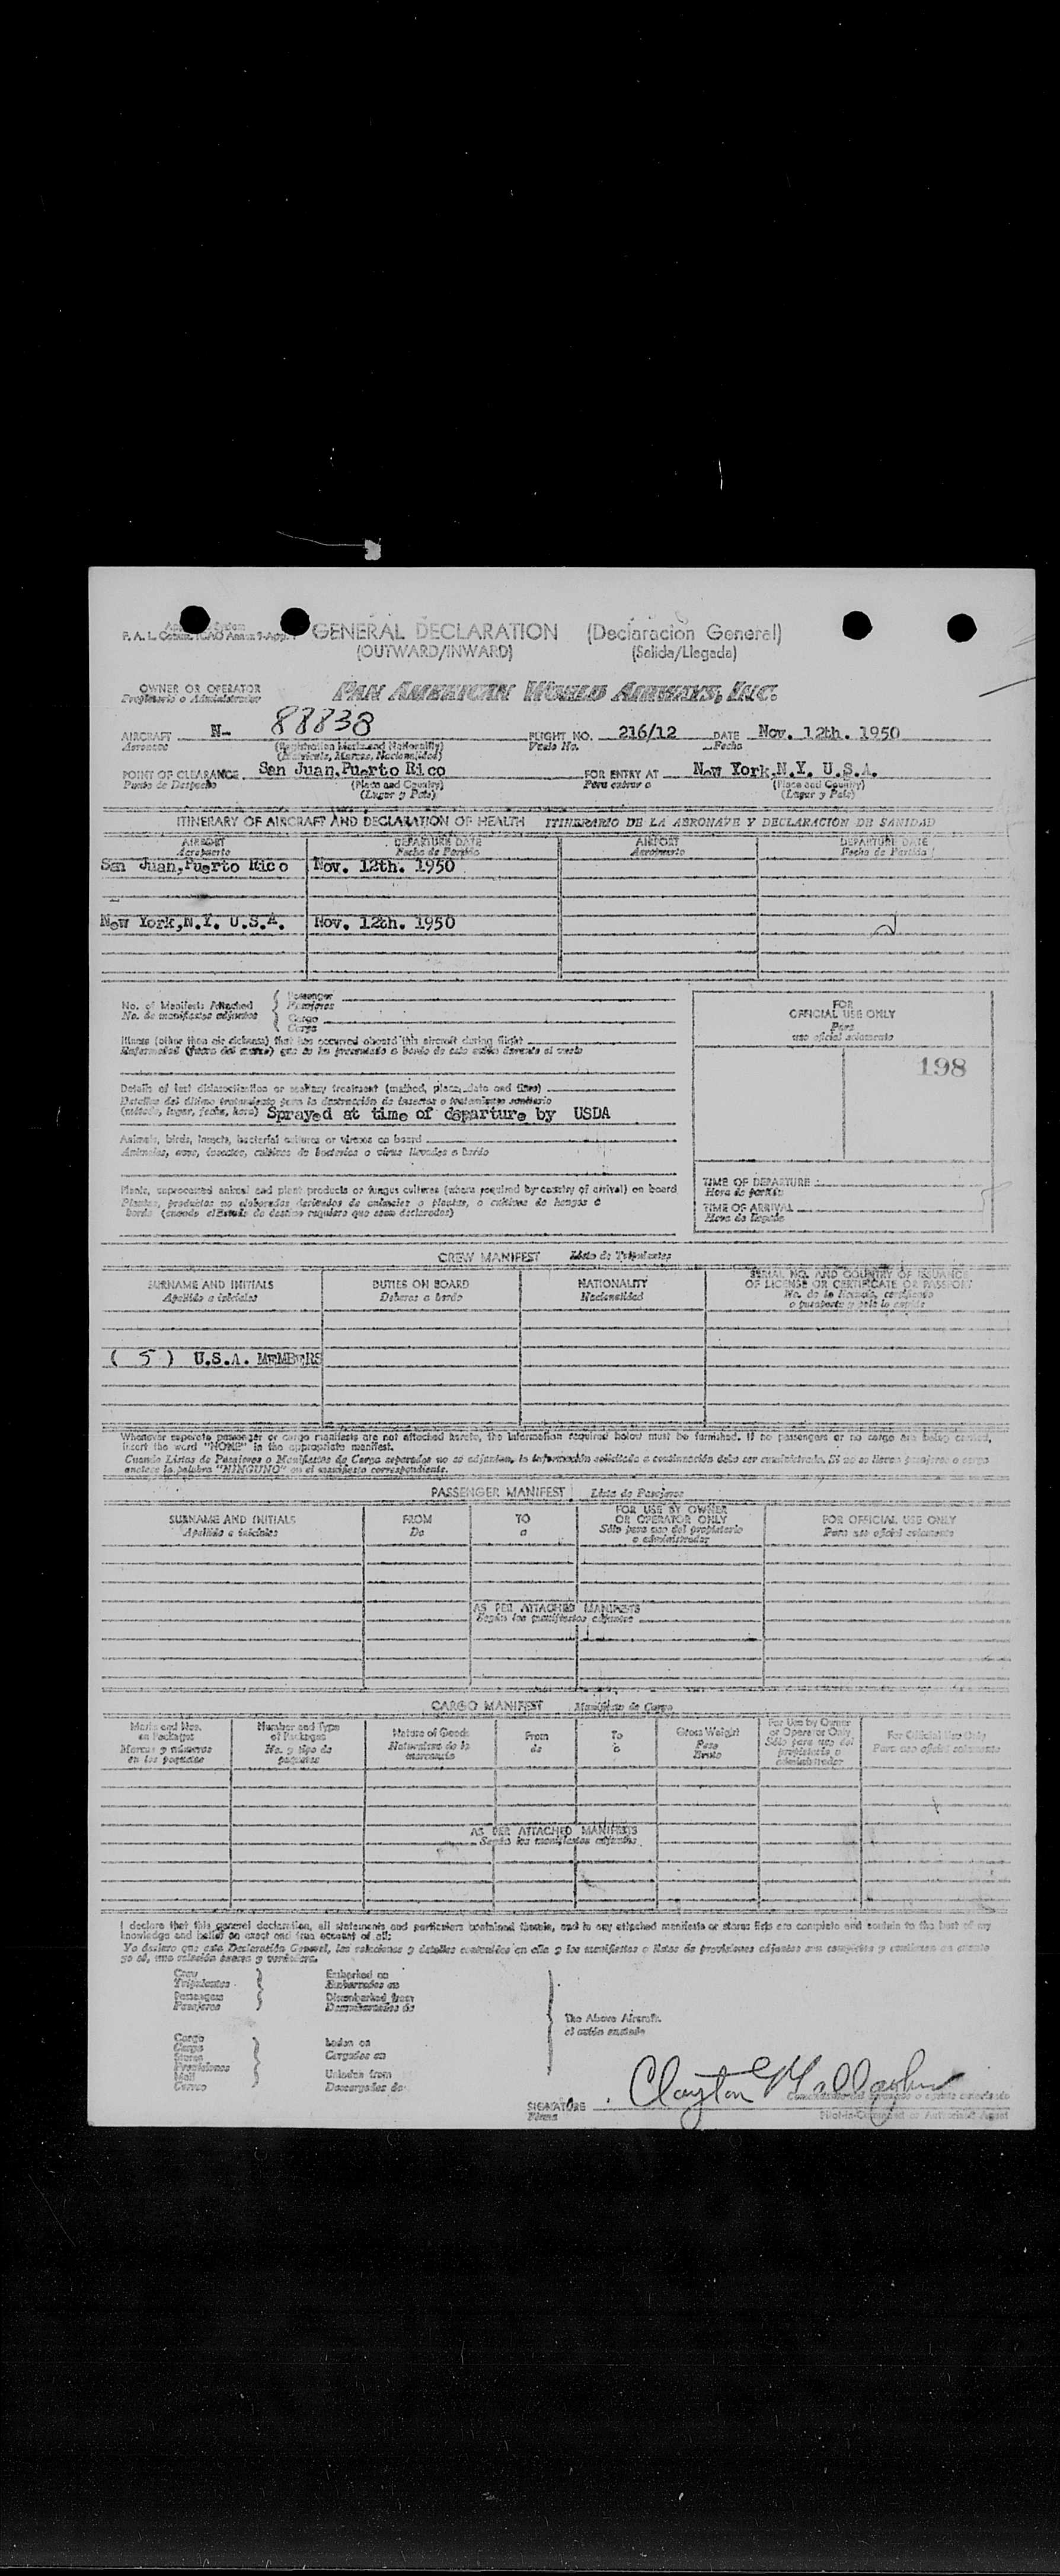 GENERAL DECLARATION (Declaración General)
(OUTWARD/INWARD) (Salida/Llegada)
OWNER OR OPERATOR PAN AMERICAN WORLD AIRWAYS, INC.
Propietario o Administrador
AIRCRAFT N- 88838 FLIGHT NO. 216/12 DATE Nov. 12th. 1950
Aeronave (Registration Marks and Nationality) Vuelo No. Fecha
POINT OF CLEARANCE San Juan,Puerto Rico FOR ENTRY AT New York,N.Y. U.S.A.
Punto de Despacho (Place and Country) Para entrar a (Place and Country)
(Lugar y País) (Lugar y País)
ITINERARY OF AIRCRAFT AND DECLARATION OF HEALTH ITINERARIO DE LA AERONAVE Y DECLARACION DE SANIDAD
AIRPORT DEPARTURE DATE AIRPORT DEPARTURE DATE
Aeropuerto Fecha de Partida Aeropuerto Fecha de Partida
San Juan,Puerto Rico Nov. 12th. 1950
New York,N.Y. U.S.A. Nov. 12th. 1950
No. of Manifests Attached Passenger
No. de manifiestos adjuntos Pasajeros
Cargo
Carga
FOR
OFFICIAL USE ONLY
Para
uso oficial solamente
198
Illness (other than air sickness) that has occurred aboard this aircraft during flight
Details of last disinsectization or sanitary treatment (method, place, date and time)
Detalles del último tratamiento para la destrucción de insectos o tratamiento sanitario
(método, lugar, fecha, hora) Sprayed at time of departure by USDA
Animals, birds, insects, bacterial cultures or viruses on board
Animales, aves, insectos, cultivos de bacterias o virus llevados a bordo
Plants, unprocessed animal and plant products or fungus cultures (where required by country of arrival) on board
Plantas, productos no elaborados derivados de animales o plantas, o cultivos de hongos a
bordo (cuando el Estado de destino requiera que sean declarados)
TIME OF DEPARTURE
Hora de partida
TIME OF ARRIVAL
Hora de llegada
CREW MANIFEST Lista de Tripulantes
SURNAME AND INITIALS DUTIES ON BOARD NATIONALITY SERIAL NO. AND COUNTRY OF ISSUANCE
OF LICENSE OR CERTIFICATE OR PASSPORT
Apellido e iniciales Deberes a bordo Nacionalidad
( 5 ) U.S.A. MEMBERS
Whenever separate passenger or cargo manifests are not attached hereto, the information required below must be furnished. If no passengers or no cargo are being carried,
insert the word "NONE" in the appropriate manifest.
Cuando Listas de Pasajeros o Manifiestos de Carga separados no se adjuntan, la información solicitada a continuación debe ser suministrada. Si no se llevan pasajeros o carga
anotese la palabra "NINGUNO" en el manifiesto correspondiente.
PASSENGER MANIFEST Lista de Pasajeros
SURNAME AND INITIALS FROM TO FOR USE BY OWNER OR OPERATOR ONLY FOR OFFICIAL USE ONLY
Apellido e iniciales De a Sólo para uso del propietario o administrador Para uso oficial solamente
AS PER ATTACHED MANIFESTS
Según los manifiestos adjuntos
CARGO MANIFEST Manifiesto de Carga
Marks and Nos. on Packages Number and Type of Packages Nature of Goods From To Gross Weight For Use by Owner or Operator Only For Official Use Only
Marcas y números en los paquetes No. y tipo de paquetes Naturaleza de la mercancía de a Peso Bruto Sólo para uso del propietario o administrador Para uso oficial solamente
AS PER ATTACHED MANIFESTS
Según los manifiestos adjuntos
I declare that this general declaration, all statements and particulars contained therein, and in any attached manifests or stores lists are complete and contain to the best of my
knowledge and belief an exact and true account of all:
Crew Embarked on
Tripulantes Embarcados en
Passengers Disembarked from
Pasajeros Desembarcados de
The Above Aircraft.
el avión anotado
Cargo Laden on
Carga Cargados en
Stores
Provisiones
Mail Unladen from
Correo Descargados de
SIGNATURE Clayton Gallagher
Firma
Pilot-in-Command or Authorized Agent